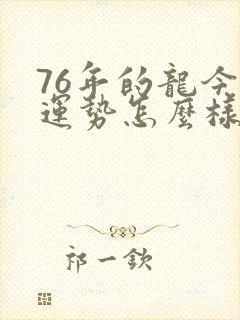 76年的龍今
運勢怎麼樣
祁一欽